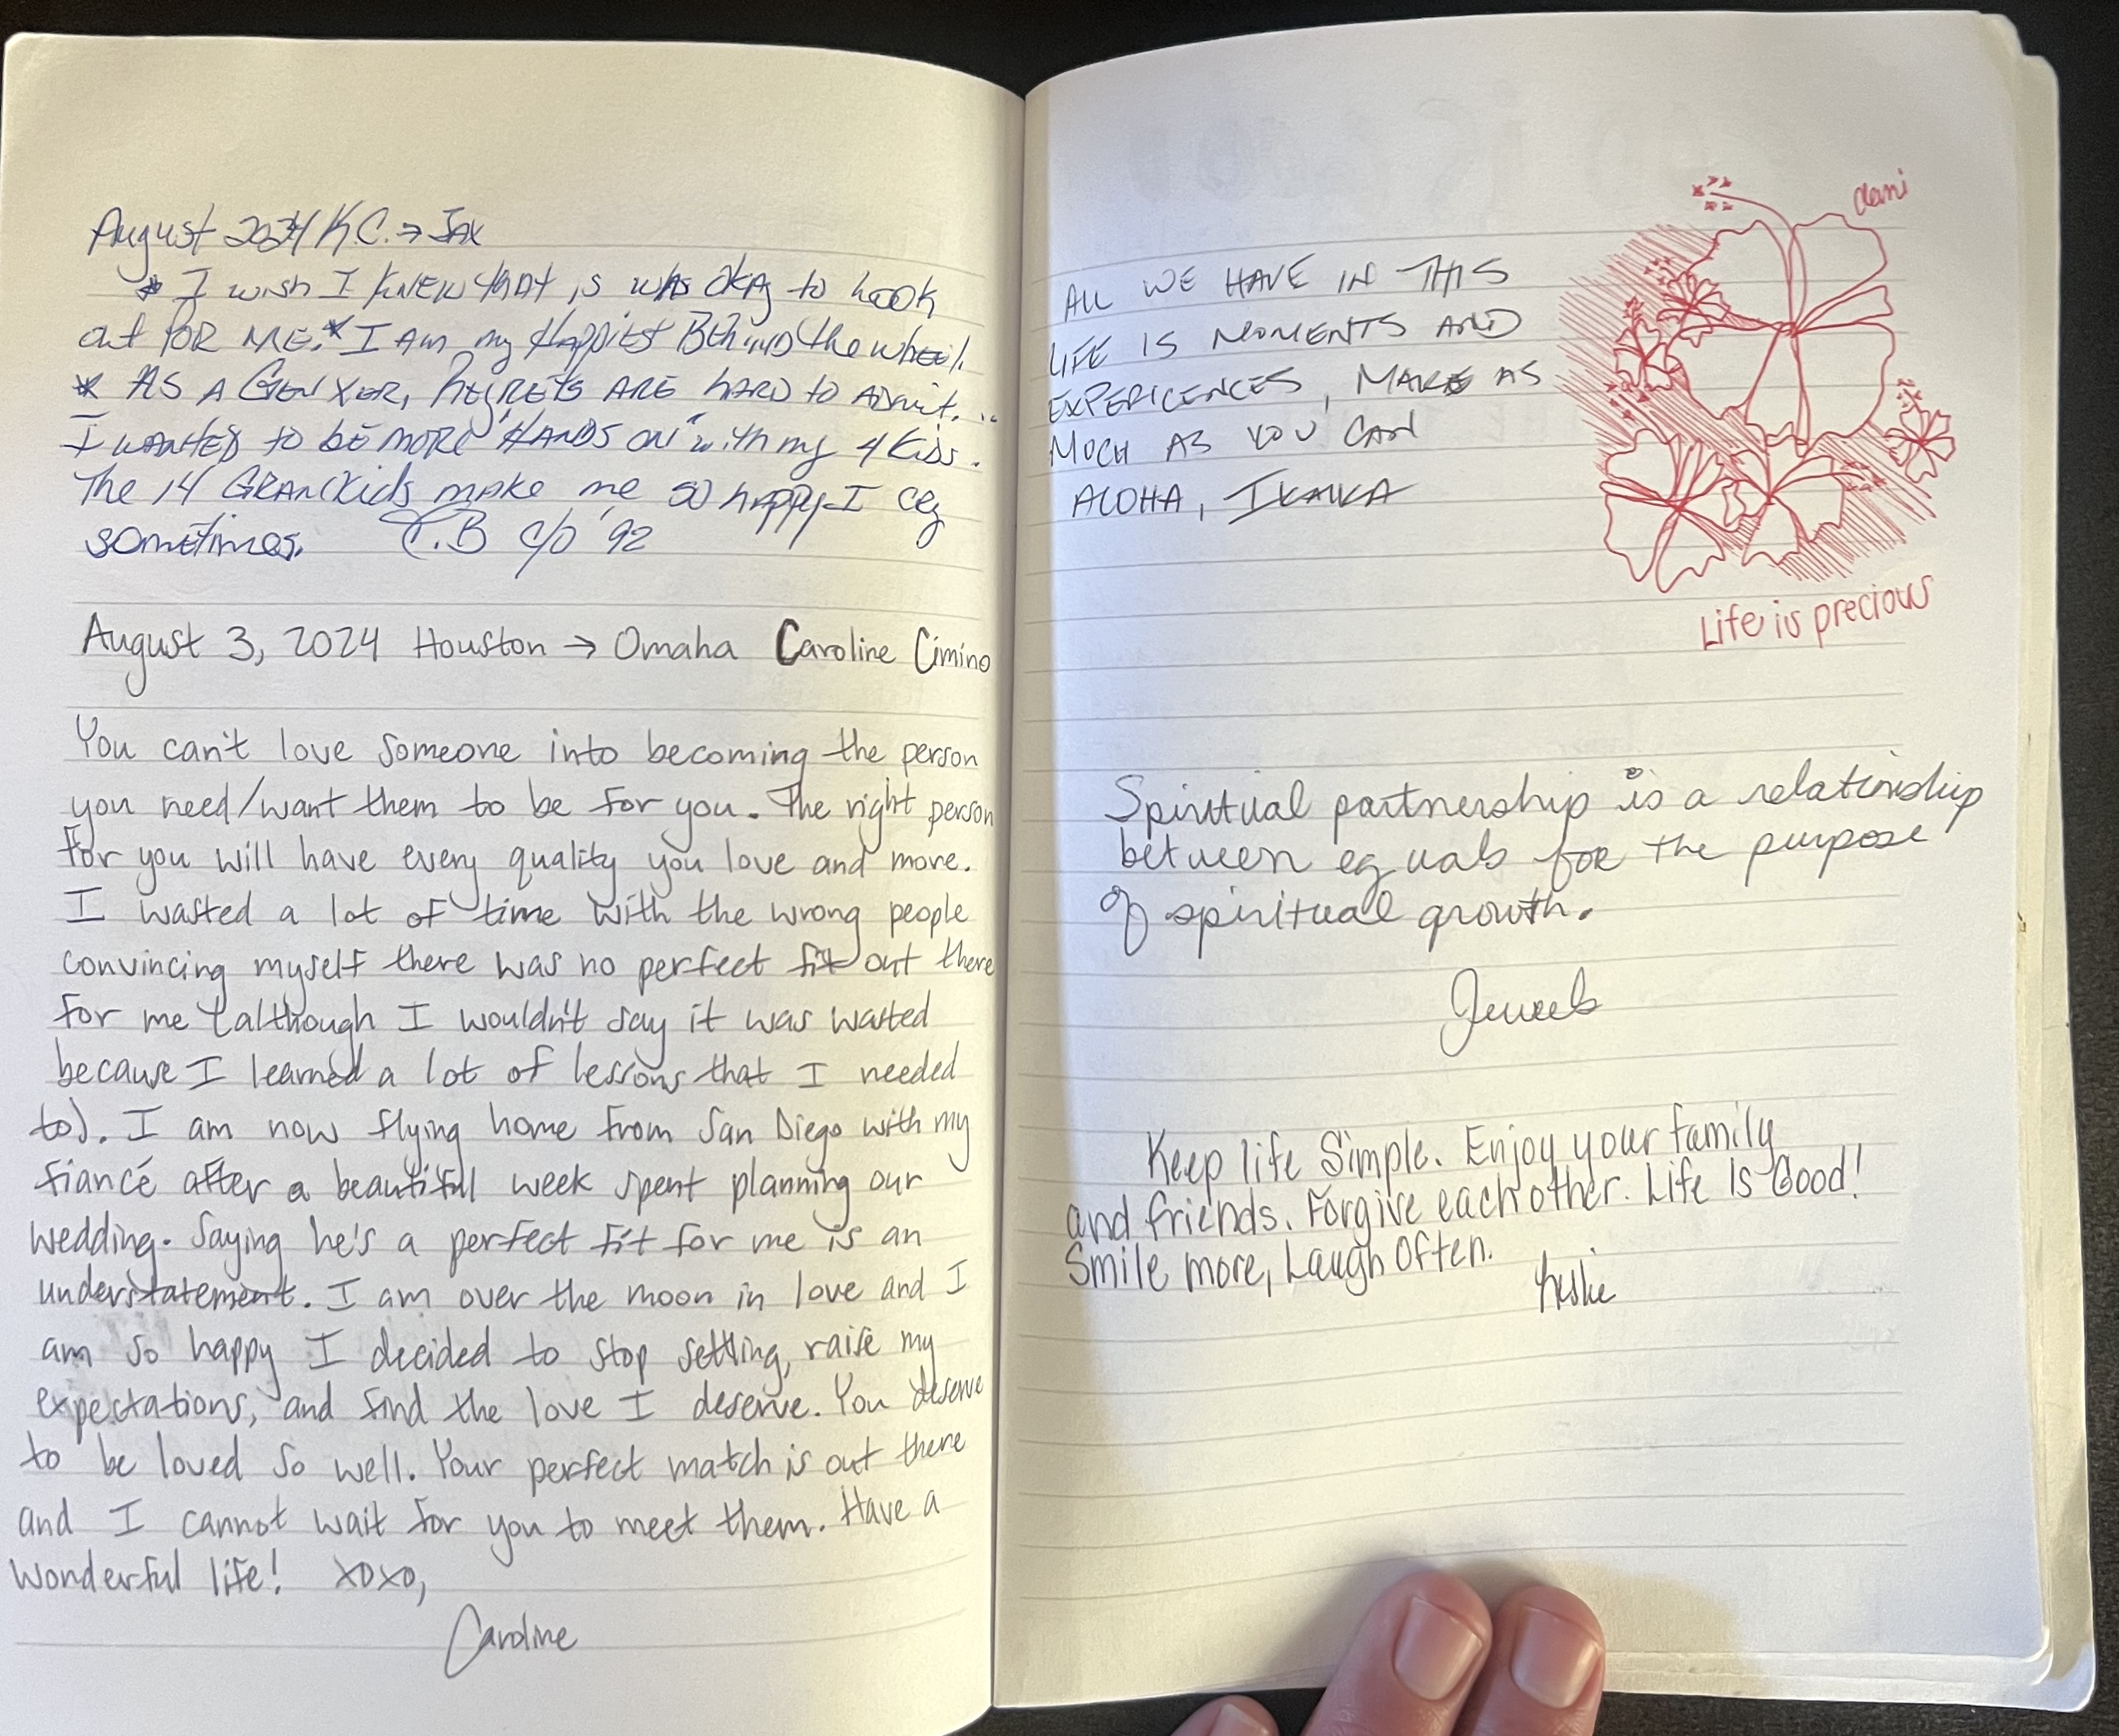 August 2024 K.C. → JAX
* I wish I KNEW that is was okay to look
out FOR ME. * I AM my Happiest BEhIND the wheel.
* AS A GEN XER, REgRETS ARE hARD to ADmit...
I WANTED to bE MORE "HANDS ON" with my 4 Kids.
The 14 GRANdKids make me so happy I cry
sometimes. T.B c/o '92
August 3, 2024 Houston → Omaha Caroline Cimino
You can't love someone into becoming the person
you need/want them to be for you. The right person
for you will have every quality you love and more.
I wasted a lot of time with the wrong people
convincing myself there was no perfect fit out there
for me (although I wouldn't say it was wasted
because I learned a lot of lessons that I needed
to). I am now flying home from San Diego with my
fiancé after a beautiful week spent planning our
wedding. Saying he's a perfect fit for me is an
understatement. I am over the moon in love and I
am so happy I decided to stop settling, raise my
expectations, and find the love I deserve. You deserve
to be loved so well. Your perfect match is out there
and I cannot wait for you to meet them. Have a
wonderful life! xoxo,
Caroline
dani
ALL WE HAVE IN THIS
LIFE IS MOMENTS AND
EXPERICENCES, MAKE AS
MUCH AS YOU CAN
ALOHA, IKAIKA
Life is precious
Spiritual partnership is a relationship
between equals for the purpose
of spiritual growth.
Jewels
Keep life Simple. Enjoy your family
and friends. Forgive each other. Life Is Good!
Smile more, Laugh Often.
Leslie